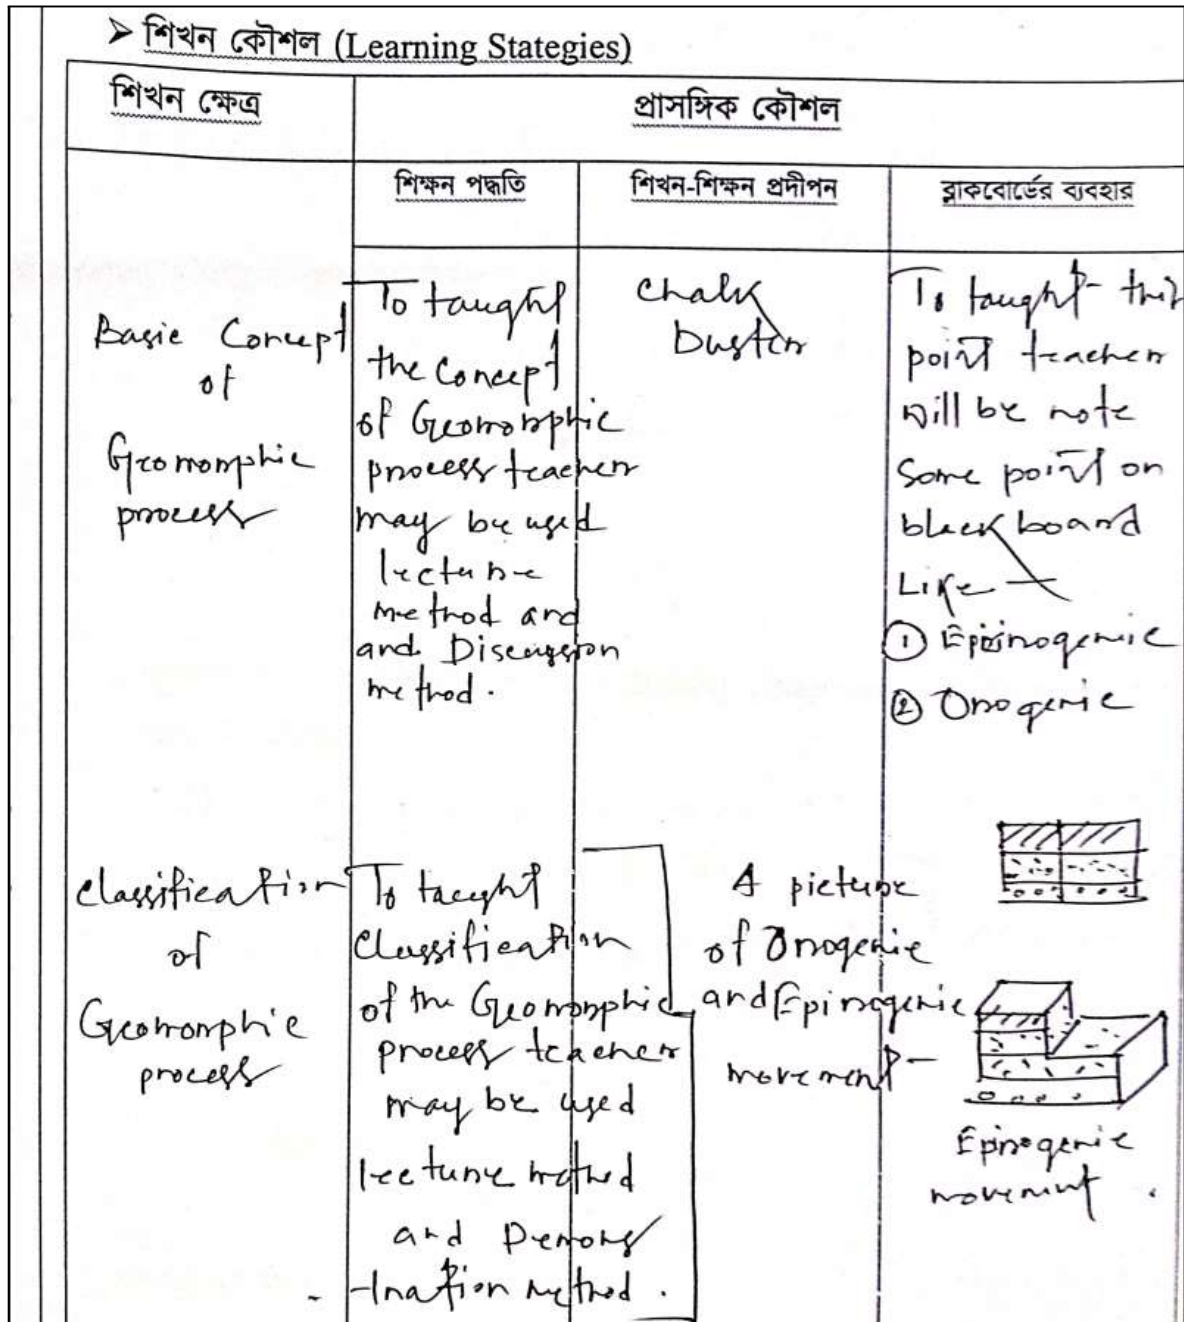 ➢ শিখন কৌশল (Learning Stategies)
শিখন ক্ষেত্র
প্রাসঙ্গিক কৌশল
শিক্ষন পদ্ধতি
শিখন-শিক্ষন প্রদীপন
ব্লাকবোর্ডের ব্যবহার
Basic Concept
of
Geomorphic
process
To taught
the concept
of Geomorphic
process teacher
may be used
lecture
method and
and Discussion
method.
Chalk
Duster
To taught this
point teacher
will be note
Some point on
black board
Like —
① Epirogenic
② Orogenic
Classification
of
Geomorphic
process
To taught
Classification
of the Geomorphic
process teacher
may be used
lecture method
and Demons
-tration method.
A picture
of Orogenic
and Epirogenic
movement –
Epirogenic
movement.